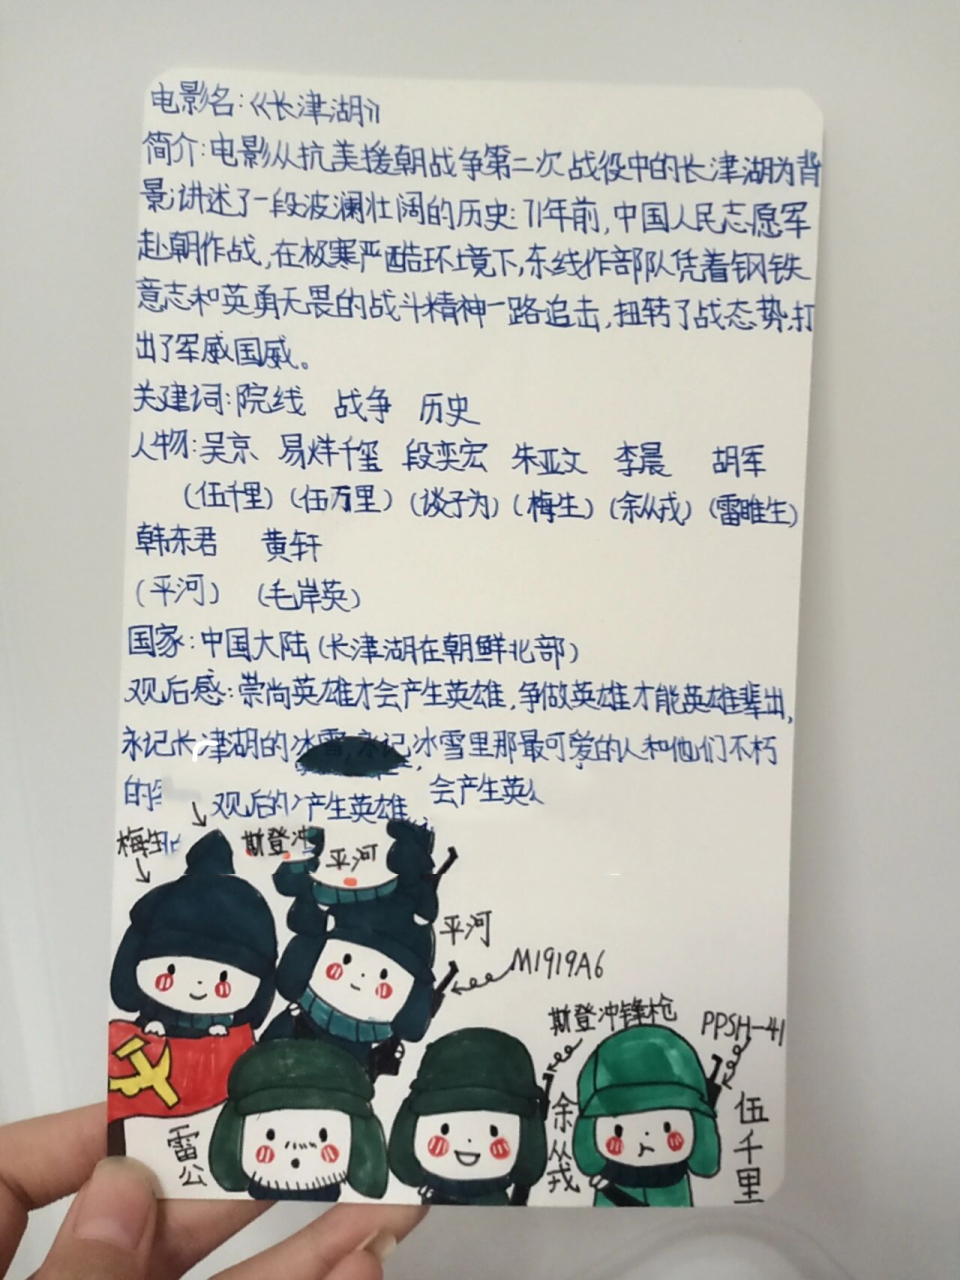 电影名:《长津湖》
简介:电影从抗美援朝战争第二次战役中的长津湖为背
景,讲述了一段波澜壮阔的历史:71年前,中国人民志愿军
赴朝作战,在极寒严酷环境下,东线作部队凭着钢铁
意志和英勇无畏的战斗精神一路追击,扭转了战态势,打
出了军威国威。
关建词:院线 战争 历史
人物:吴京 易烊千玺 段奕宏 朱亚文 李晨 胡军
(伍千里) (伍万里) (谈子为) (梅生) (余从戎) (雷睢生)
韩东君 黄轩
(平河) (毛岸英)
国家:中国大陆(长津湖在朝鲜北部)
观后感:崇尚英雄才会产生英雄,争做英雄才能英雄辈出,
永记长津湖的冰雪,永记冰雪里那最可爱的人和他们不朽
的
观后的 产生英雄 会产生英
梅生
斯登冲
平河
平河
M1919A6
斯登冲锋枪
PPSH-41
雷公
余从戎
伍千里